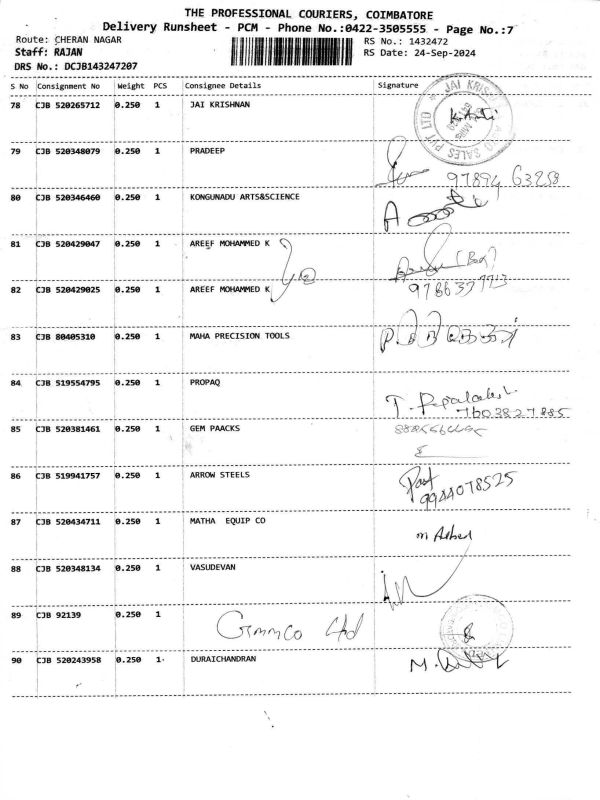 THE PROFESSIONAL COURIERS, COIMBATORE
Delivery Runsheet - PCM - Phone No.:0422-3505555 - Page No.:7
Route: CHERAN NAGAR RS No.: 1432472
Staff: RAJAN RS Date: 24-Sep-2024
DRS No.: DCJB143247207
S No Consignment No Weight PCS Consignee Details Signature
78 CJB 520265712 0.250 1 JAI KRISHNAN
79 CJB 520348079 0.250 1 PRADEEP
97894 63258
80 CJB 520346460 0.250 1 KONGUNADU ARTS&SCIENCE
81 CJB 520429047 0.250 1 AREEF MOHAMMED K
82 CJB 520429025 0.250 1 AREEF MOHAMMED K
83 CJB 80405310 0.250 1 MAHA PRECISION TOOLS
84 CJB 519554795 0.250 1 PROPAQ
7603827885
85 CJB 520381461 0.250 1 GEM PAACKS
86 CJB 519941757 0.250 1 ARROW STEELS
9944078525
87 CJB 520434711 0.250 1 MATHA EQUIP CO
88 CJB 520348134 0.250 1 VASUDEVAN
89 CJB 92139 0.250 1 Gimmco Ltd
90 CJB 520243958 0.250 1 DURAICHANDRAN